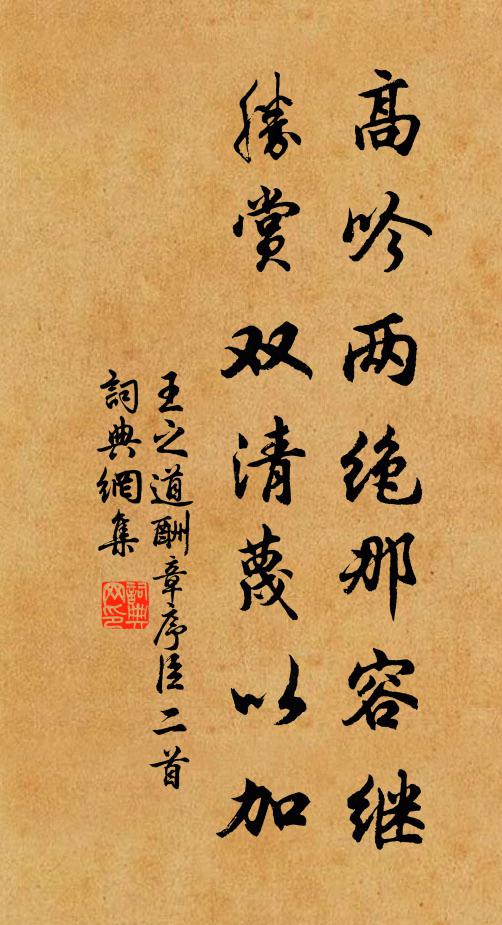 高吟两绝那容继
勝赏双清蔑以加
王之道酬章序臣二首
詞典網集
詞典
网印